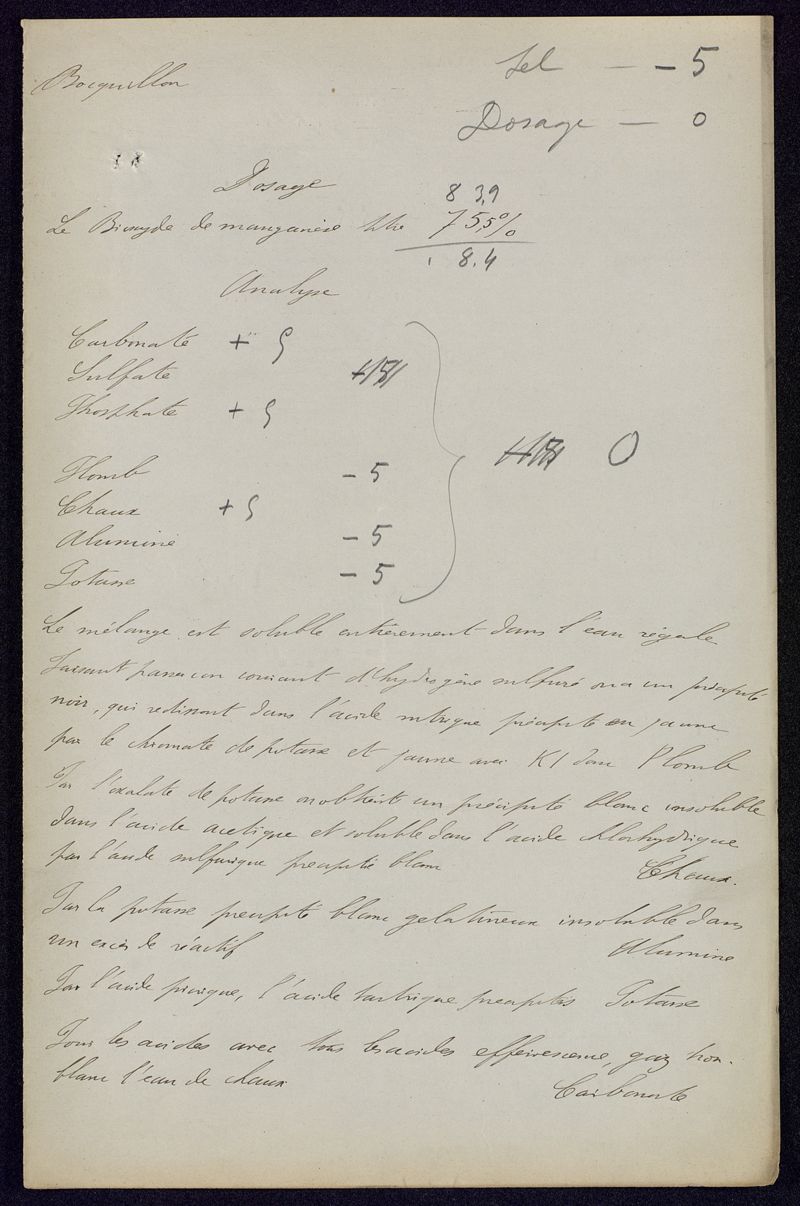 Bocquillon
Sel — – 5
Dosage — 0
Dosage
83,9
Le Bioxyde de manganèse titre 75,5%
8.4
Analyse
Carbonate + 5
Sulfate
Phosphate + 5
0
Plomb – 5
Chaux + 5
Alumine – 5
Potasse – 5
Le mélange est soluble entièrement dans l'eau régale
Faisant passer un courant d'hydrogène sulfuré on a un précipité
noir, qui redissout dans l'acide nitrique précipite en jaune
par le chromate de potasse et jaune avec KI donc Plomb
Par l'oxalate de potasse on obtient un précipité blanc insoluble
dans l'acide acétique et soluble dans l'acide chlorhydrique
par l'acide sulfurique précipité blanc Chaux.
Par la potasse precipité blanc gelatineux insoluble dans
un excès de réactif Alumine
Par l'acide picrique, l'acide tartrique precipités Potasse
Pour les acides avec tous les acides effervescence, gaz trou-
blant l'eau de chaux Carbonate